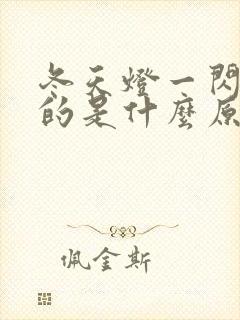 冬天燈一閃
的是什麼原
佩金斯